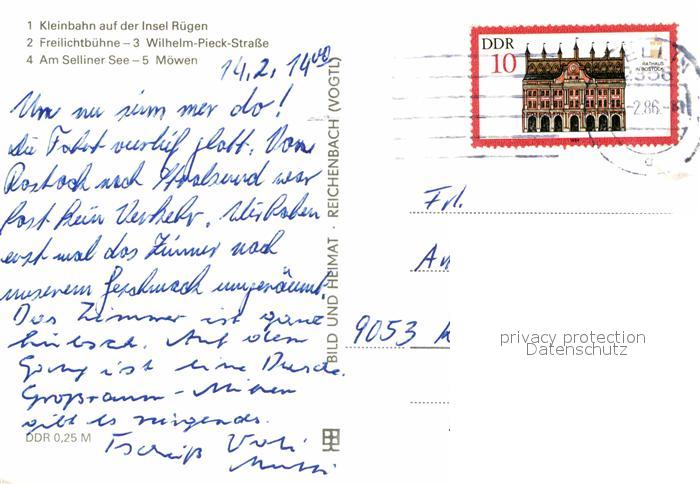 1 Kleinbahn auf der Insel Rügen
2 Freilichtbühne – 3 Wilhelm-Pieck-Straße
4 Am Selliner See – 5 Möwen
14.2. 14⁰⁰
Un nu sim mer do!
Die Fahrt verlief glatt. Von
Rostock nach Stralsund war
fast kein Verkehr. Wir haben
erst mal das Zimmer nach
unserem Geschmack umgeräumt.
Das Zimmer ist ganz
hübsch. Auf dem
Gang ist eine Dusche.
Großraum-
gibt es nirgends.
DDR 0,25 M
Tschüß Vati
Mutti
BILD UND HEIMAT · REICHENBACH (VOGTL)
DDR
10
RATHAUS
IN ROSTOCK
2356
-2.86.-8
a
Frl.
An
9053 K
privacy protection
Datenschutz